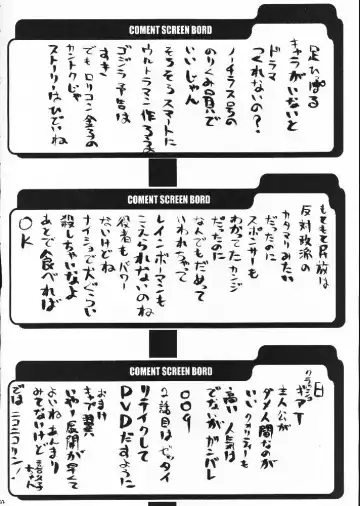 COMENT SCREEN BORD
足ひっぱる
キャラがいないと
ドラマ
つくれないの?
ノーチラス号の
のりくみ員で
いいじゃん
そろそろスマートに
ウルトラマン作ろうよ
ゴジラ予告は
すき
でもロリコン金子の
カントクじゃ
ストーリーはひどいね
COMENT SCREEN BORD
もともと片放は
反対政派の
カタマリみたい
だったのに
スポンサーも
わかってたカンジ
だったのに
なんでもだめって
いわれちゃって
レインボーマンも
こえられないのね
役者もパワー
ないけどね
ナイショで犬ぐらい
殺しちゃいなよ
あとで食べれば
OK
COMENT SCREEN BORD
主人公が
ダメ人間なのが
いいクオリティーも
高い人気は
でないががンバレ
009
2話目はゼッタイ
リテイクして
DVDだすように
おまけ
キャプ翼
いやー展開が早くて
よいねあんまり
みてないけど
ではニコニコリン!